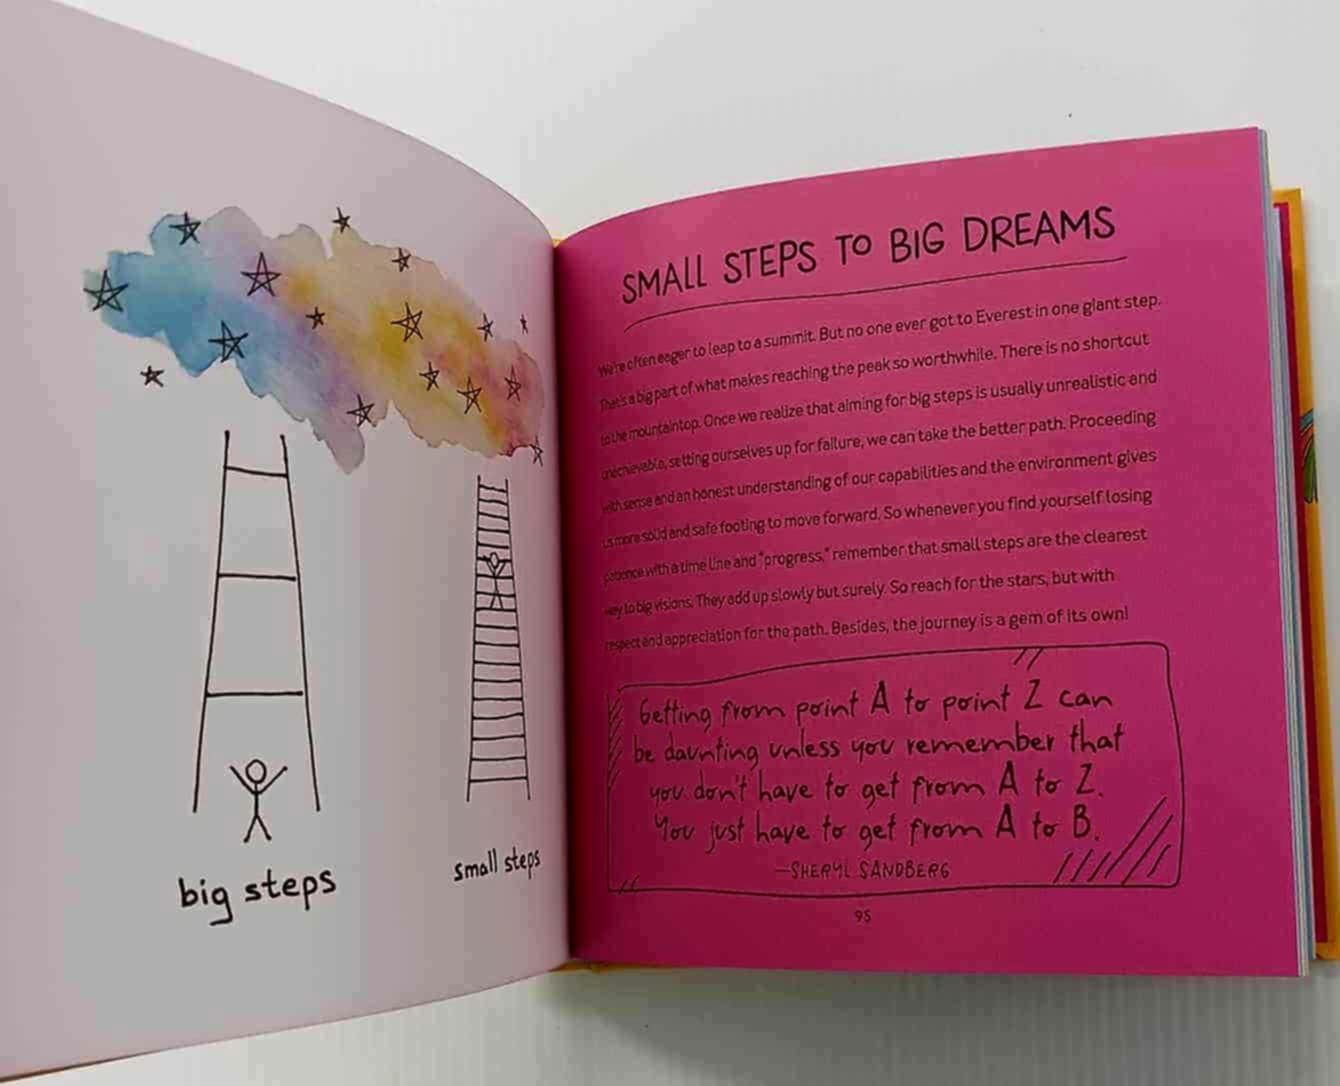 big steps
small steps
SMALL STEPS TO BIG DREAMS
We're often eager to leap to a summit. But no one ever got to Everest in one giant step.
That's a big part of what makes reaching the peak so worthwhile. There is no shortcut
to the mountaintop. Once we realize that aiming for big steps is usually unrealistic and
unachievable, setting ourselves up for failure, we can take the better path. Proceeding
with sense and an honest understanding of our capabilities and the environment gives
us more solid and safe footing to move forward. So whenever you find yourself losing
patience with a time line and "progress," remember that small steps are the clearest
key to big visions. They add up slowly but surely. So reach for the stars, but with
respect and appreciation for the path. Besides, the journey is a gem of its own!
Getting from point A to point Z can
be daunting unless you remember that
you don't have to get from A to Z.
You just have to get from A to B.
—SHERYL SANDBERG
95